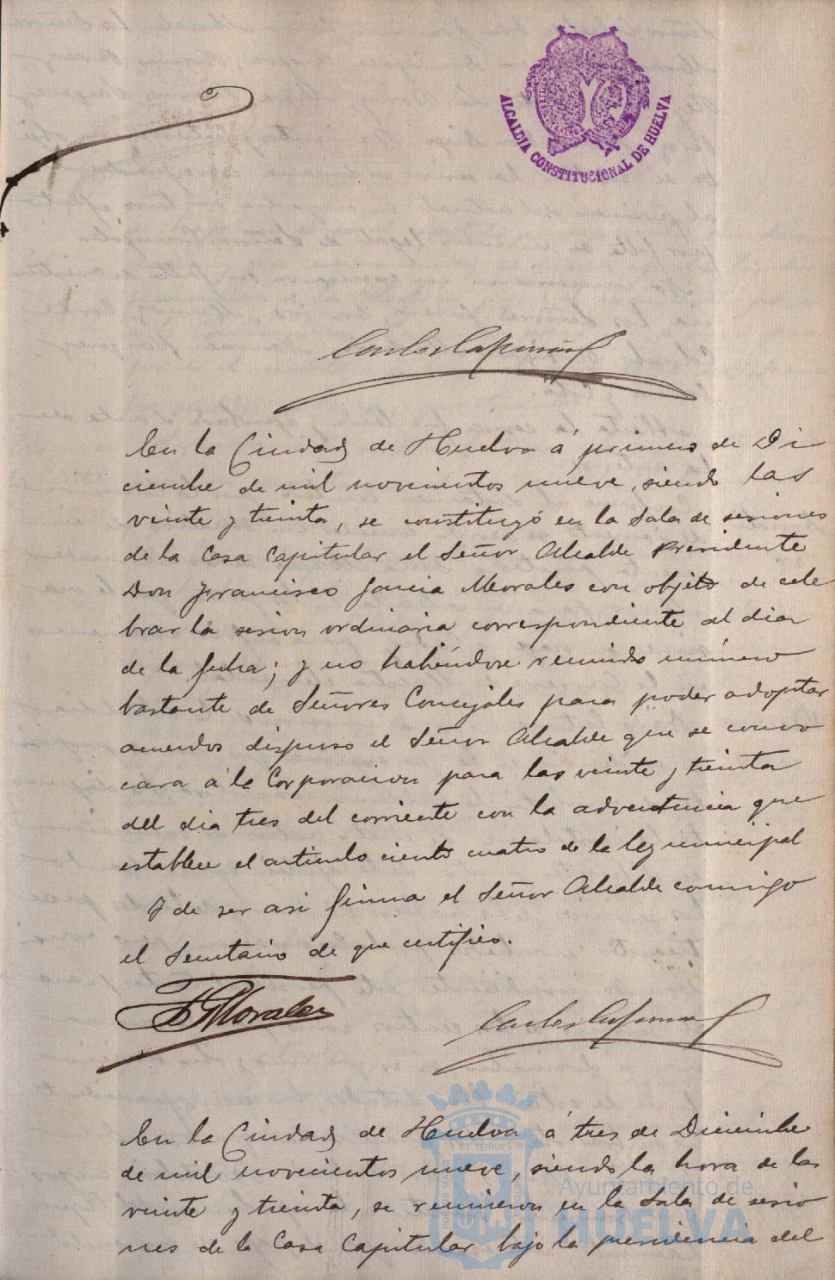 ALCALDIA CONSTITUCIONAL DE HUELVA
Carlos
En la Ciudad de Huelva á primero de Di
ciembre de mil novecientos nueve, siendo las
veinte y treinta, se constituyó en la Sala de sesiones
de la Casa Capitular el Señor Alcalde Presidente
Don Francisco Garcia Morales con objeto de cele
brar la sesion ordinaria correspondiente al dia
de la fecha; y no habiendose reunido número
bastante de Señores Concejales para poder adoptar
acuerdos dispuso el Señor Alcalde que se convo
cara á la Corporacion para las veinte y treinta
del dia tres del corriente con la advertencia que
establece el articulo ciento cuatro de la ley municipal
Y de ser asi firma el Señor Alcalde conmigo
el Secretario de que certifico.
F G Morales
Carlos
En la Ciudad de Huelva á tres de Diciembre
de mil novecientos nueve, siendo la hora de las
veinte y treinta, se reunieron en la Sala de sesio
nes de la Casa Capitular bajo la presidencia del
Ayuntamiento de
HUELVA